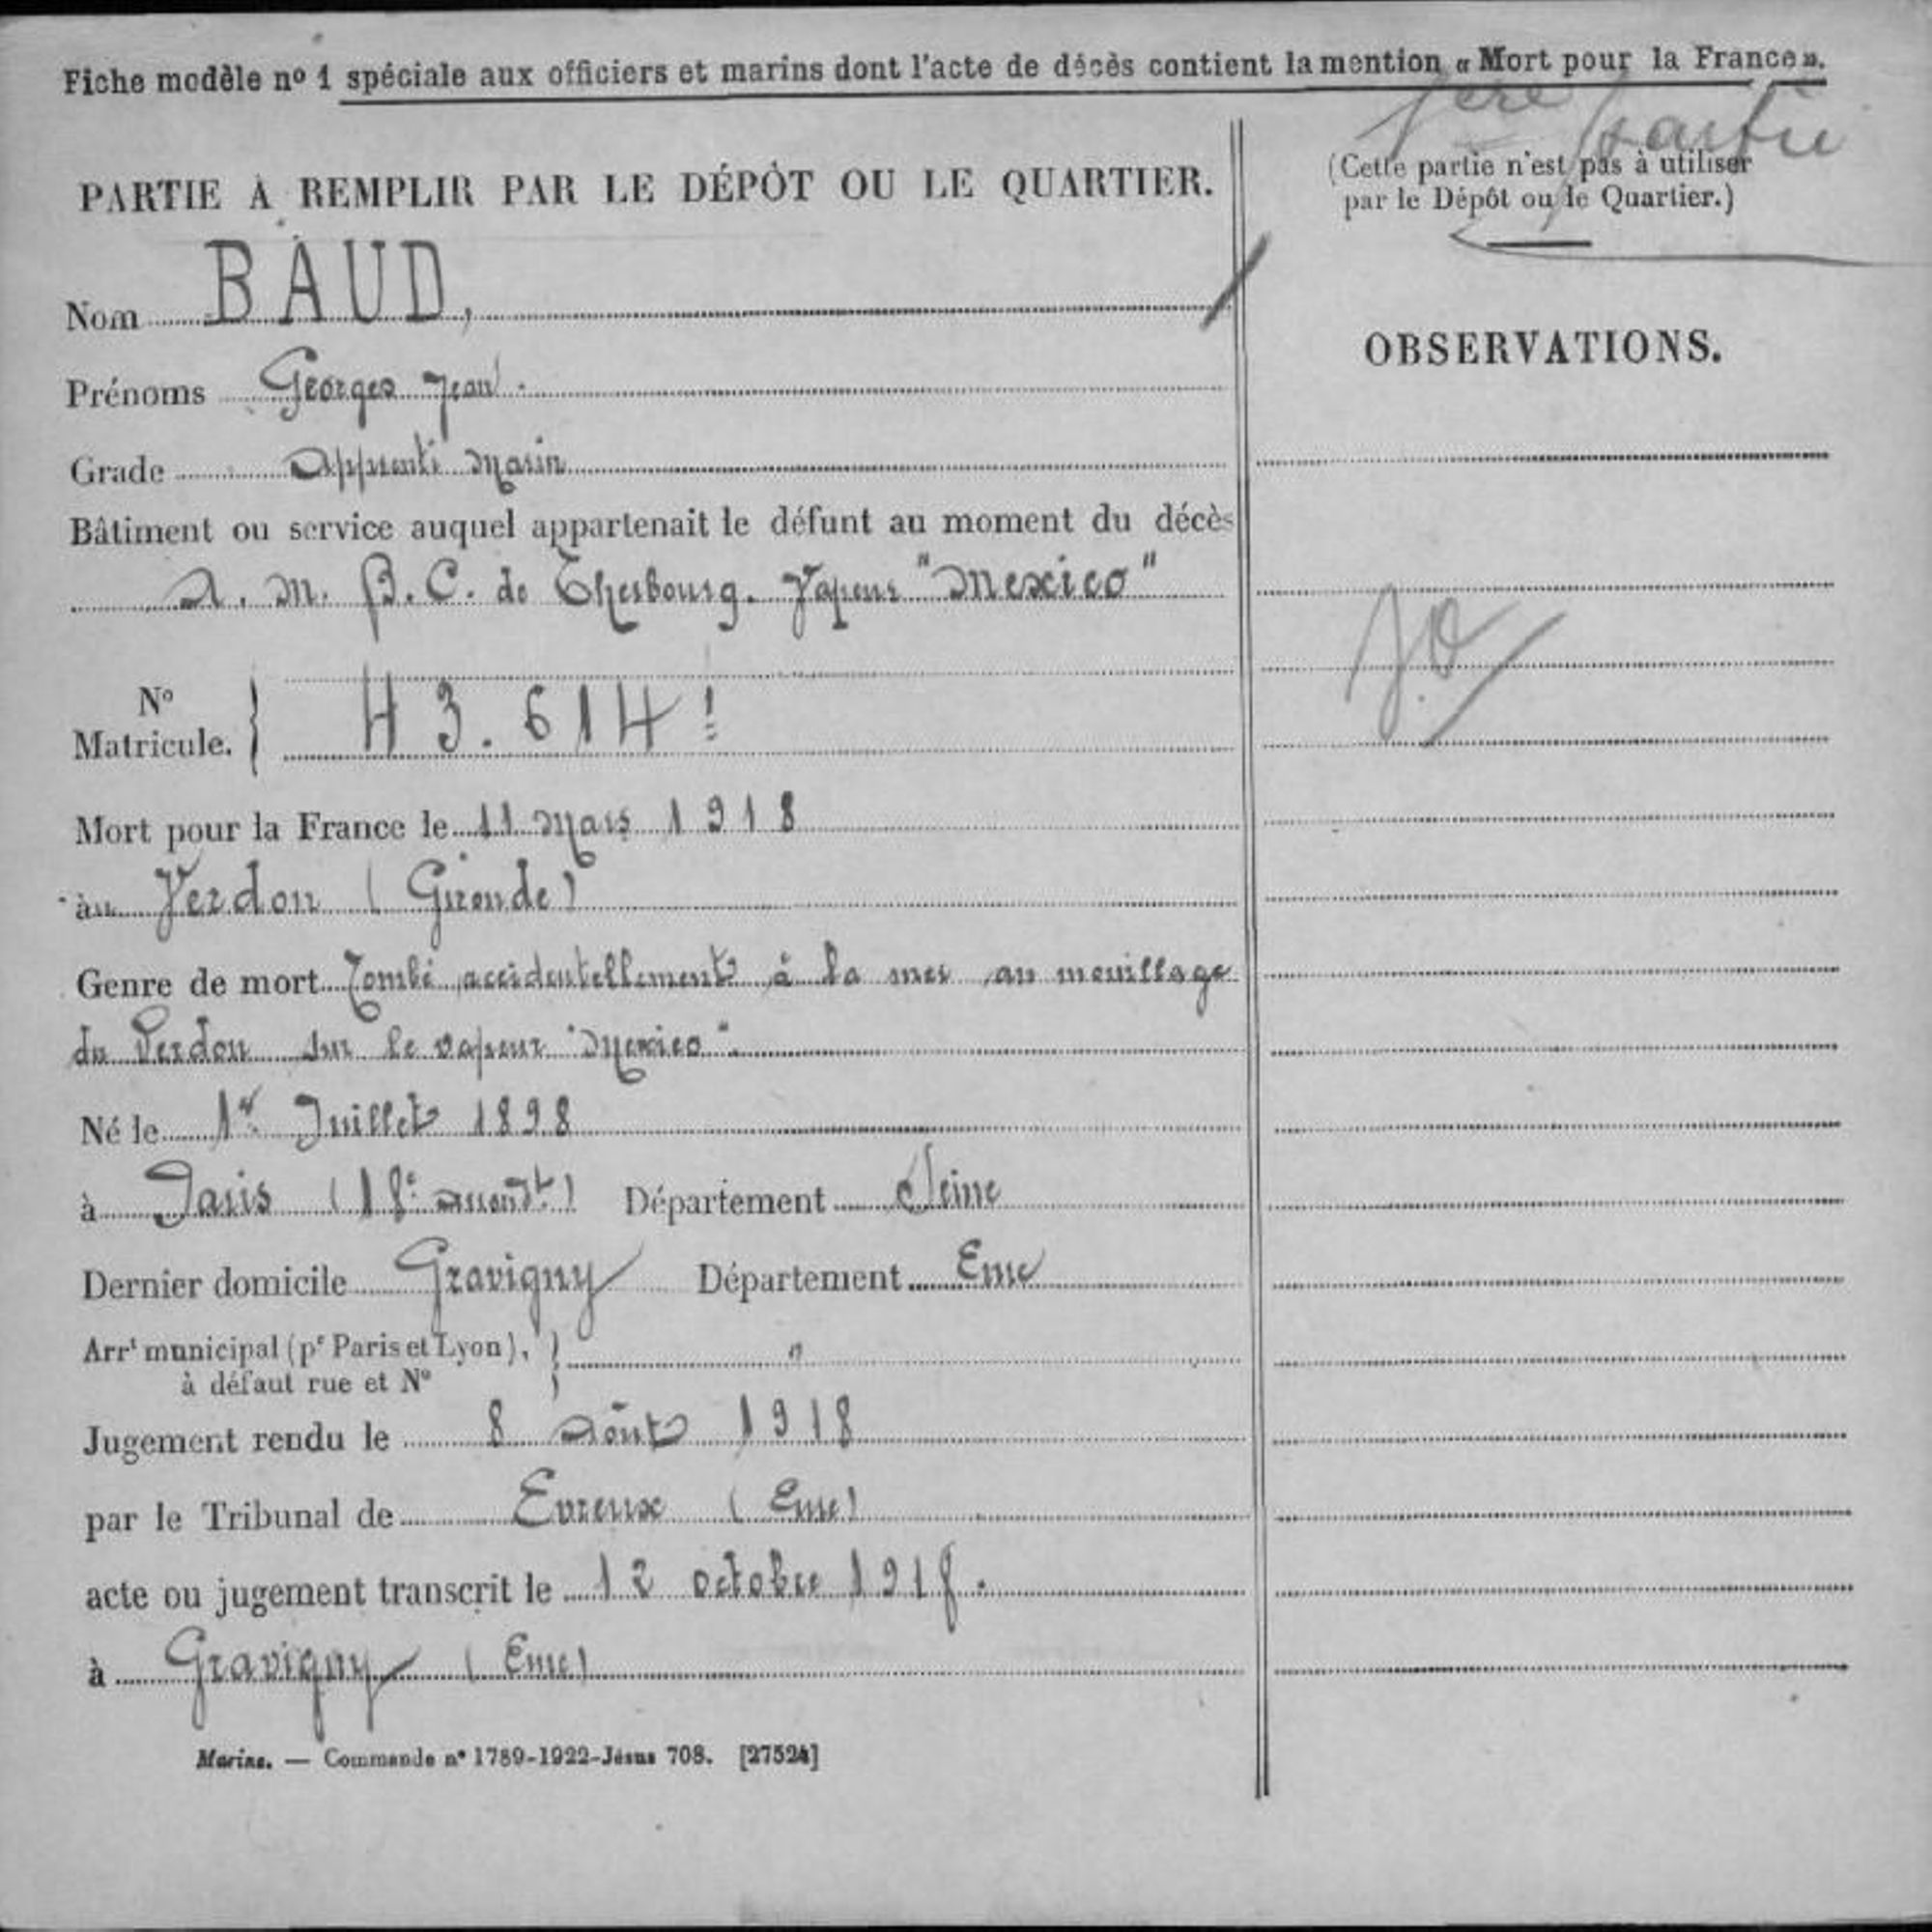 Fiche modèle nº 1 spéciale aux officiers et marins dont l'acte de décès contient la mention « Mort pour la France ».
1ère partie
PARTIE À REMPLIR PAR LE DÉPÔT OU LE QUARTIER.
(Cette partie n'est pas à utiliser
par le Dépôt ou le Quartier.)
Nom BAUD,
OBSERVATIONS.
Prénoms Georges Jean.
Grade Apprenti Marin
Bâtiment ou service auquel appartenait le défunt au moment du décès
A. M. B. C. de Cherbourg. Vapeur "Mexico"
Nº
Matricule. } 43.614
Mort pour la France le 11 Mars 1918
au Verdon (Gironde)
Genre de mort Tombé accidentellement à la mer au mouillage
du Verdon sur le vapeur "Mexico".
Né le 1er Juillet 1898
à Paris (18e arrondt) Département Seine
Dernier domicile Gravigny Département Eure
Arrt municipal (pr Paris et Lyon), } "
à défaut rue et Nº
Jugement rendu le 8 Août 1918
par le Tribunal de Evreux (Eure)
acte ou jugement transcrit le 12 octobre 1918.
à Gravigny (Eure)
Marine. — Commande nº 1789-1922-Jésus 708. [27524]